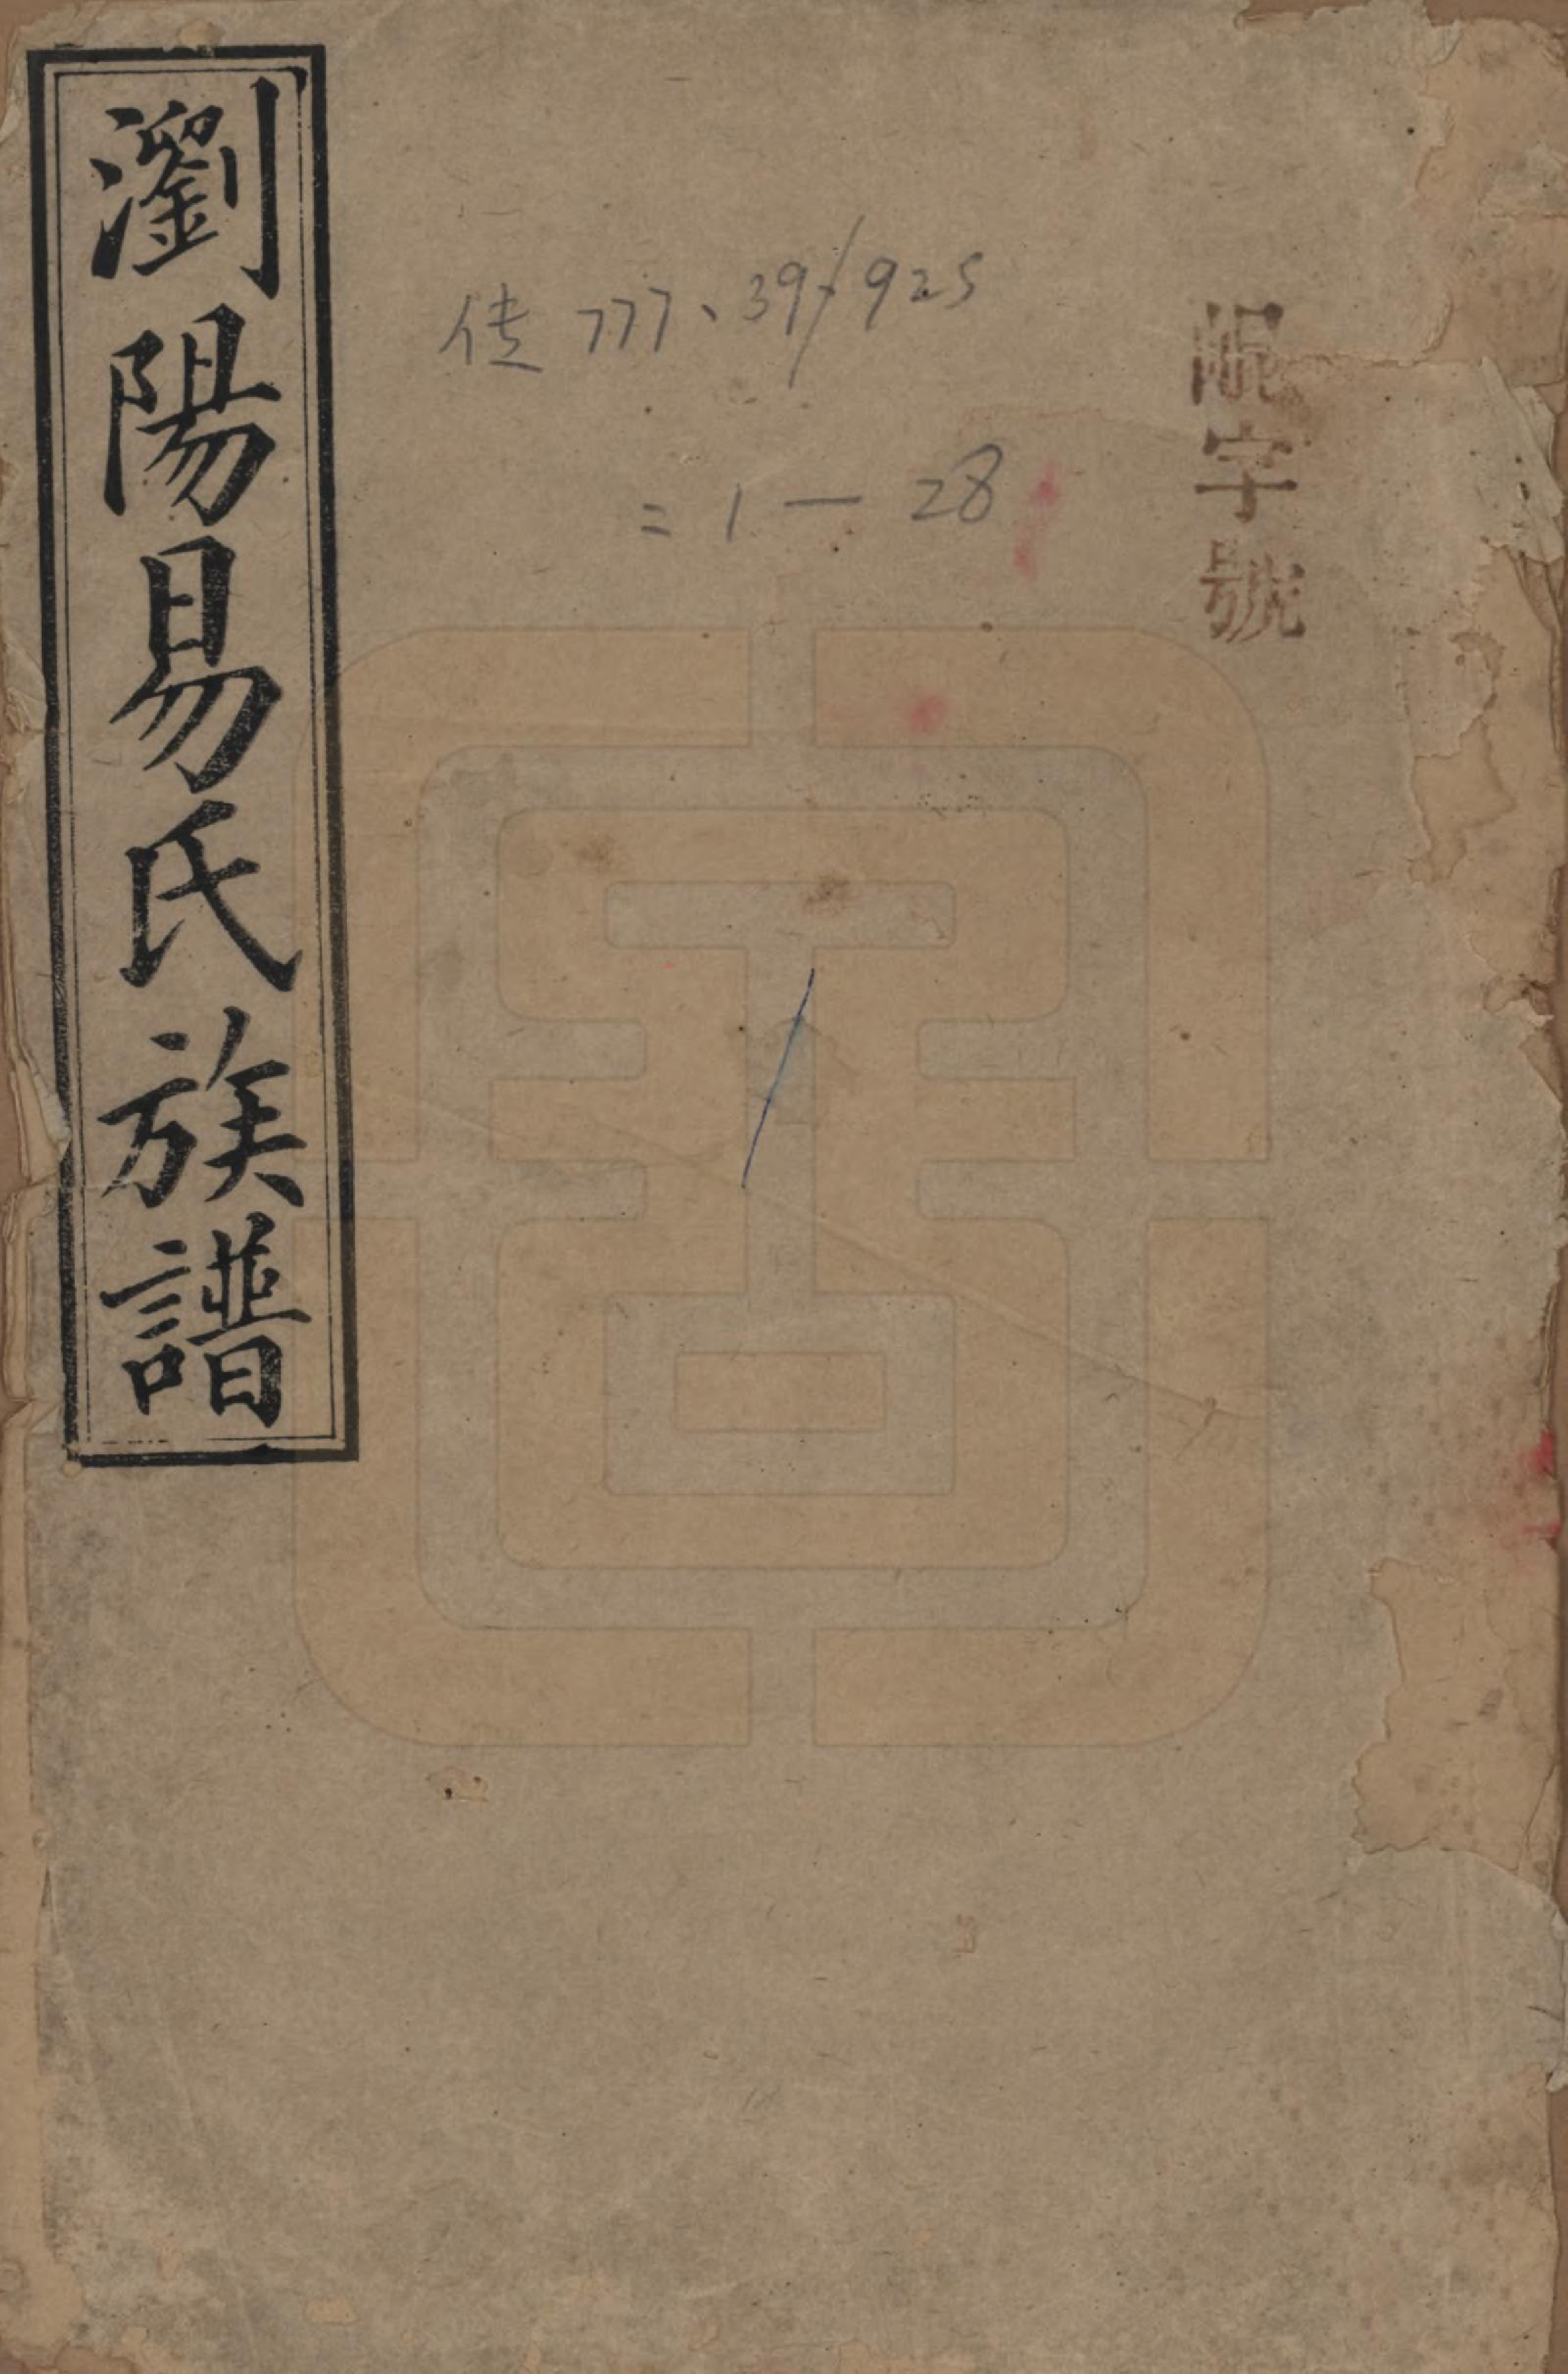 瀏陽易氏族譜
传777.39/925
=1—28
字號